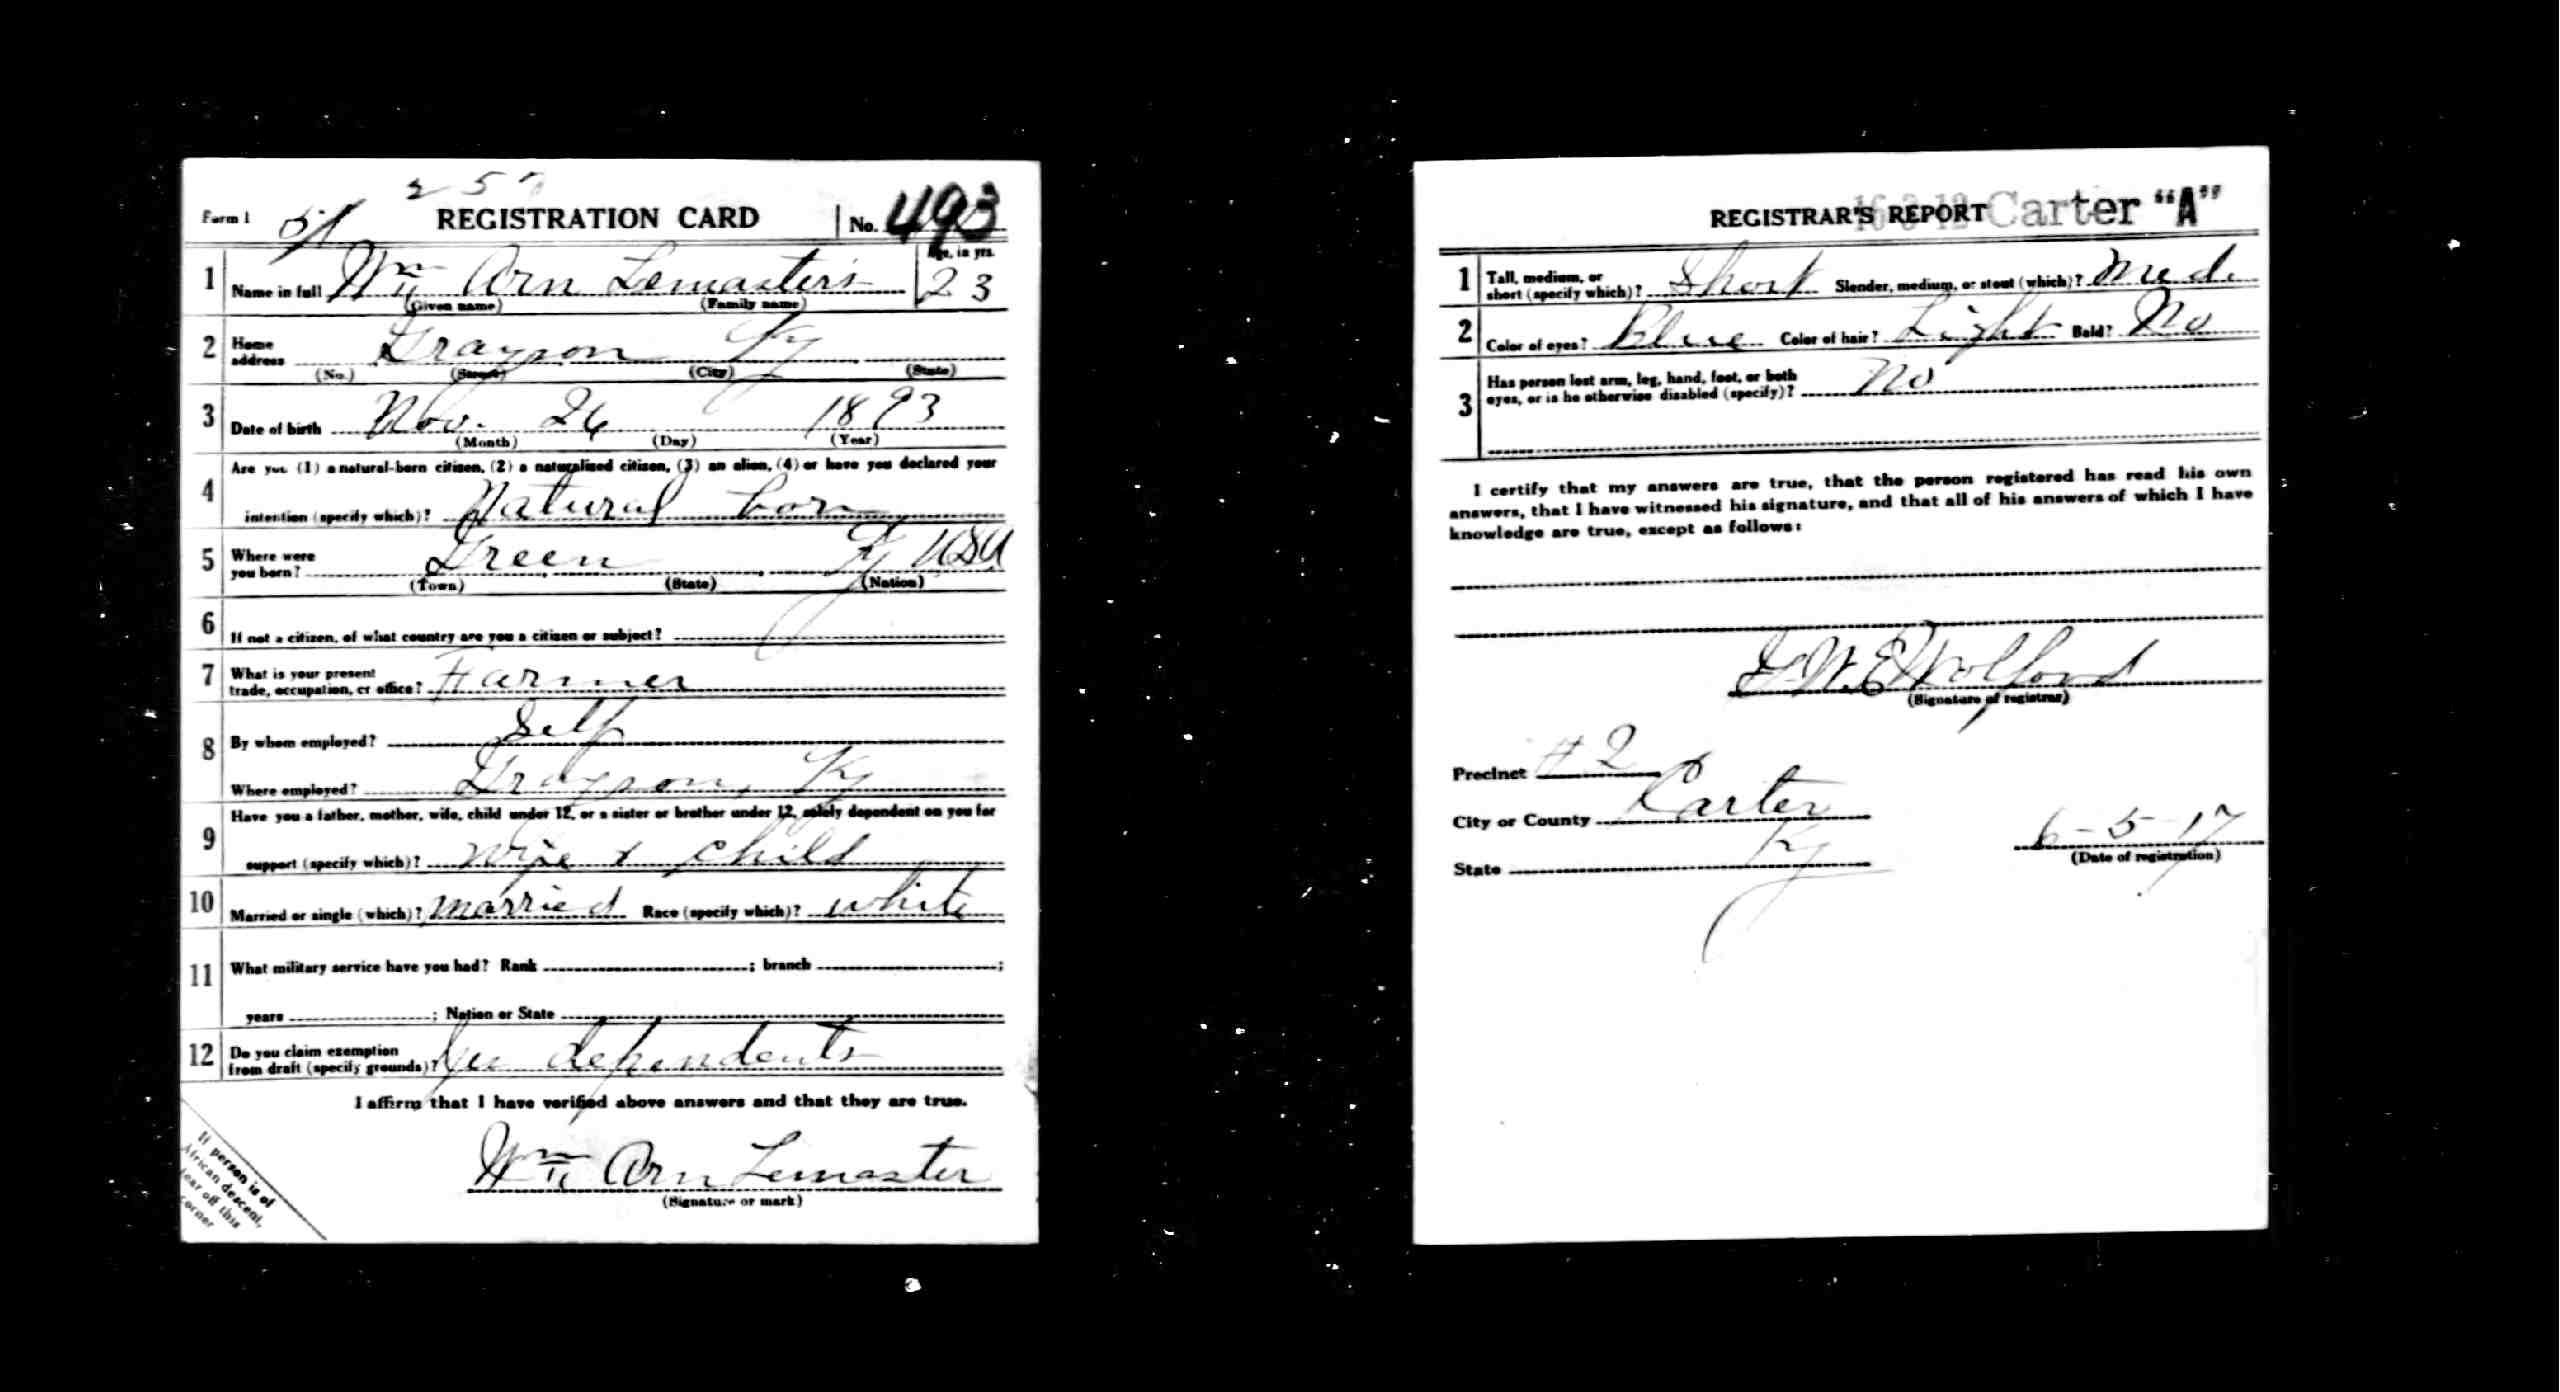 Form 1 REGISTRATION CARD No. 493
1 Name in full Wm Arn Lemasters Age, in yrs. 23
(Given name) (Family name)
2 Home address Grayson Ky
(No.) (Street) (City) (State)
3 Date of birth Nov. 26 1893
(Month) (Day) (Year)
Are you (1) a natural-born citizen, (2) a naturalized citizen, (3) an alien, (4) or have you declared your
4 intention (specify which)? Natural born
5 Where were you born? Green Ky USA
(Town) (State) (Nation)
6 If not a citizen, of what country are you a citizen or subject?
7 What is your present trade, occupation, or office? Farmer
8 By whom employed? Self
Where employed? Grayson, Ky
Have you a father, mother, wife, child under 12, or a sister or brother under 12, solely dependent on you for
9 support (specify which)? Wife & child
10 Married or single (which)? married Race (specify which)? white
11 What military service have you had? Rank ; branch ;
years ; Nation or State
12 Do you claim exemption from draft (specify grounds)? Yes dependents
I affirm that I have verified above answers and that they are true.
Wm Arn Lemaster
(Signature or mark)
If person is of
African descent,
tear off this
corner
REGISTRAR'S REPORT Carter "A"
1 Tall, medium, or short (specify which)? Short Slender, medium, or stout (which)? Med.
2 Color of eyes? Blue Color of hair? Light Bald? No
3 Has person lost arm, leg, hand, foot, or both eyes, or is he otherwise disabled (specify)? No
I certify that my answers are true, that the person registered has read his own
answers, that I have witnessed his signature, and that all of his answers of which I have
knowledge are true, except as follows:
(Signature of registrar)
Precinct #2
City or County Carter
State Ky
6-5-17
(Date of registration)